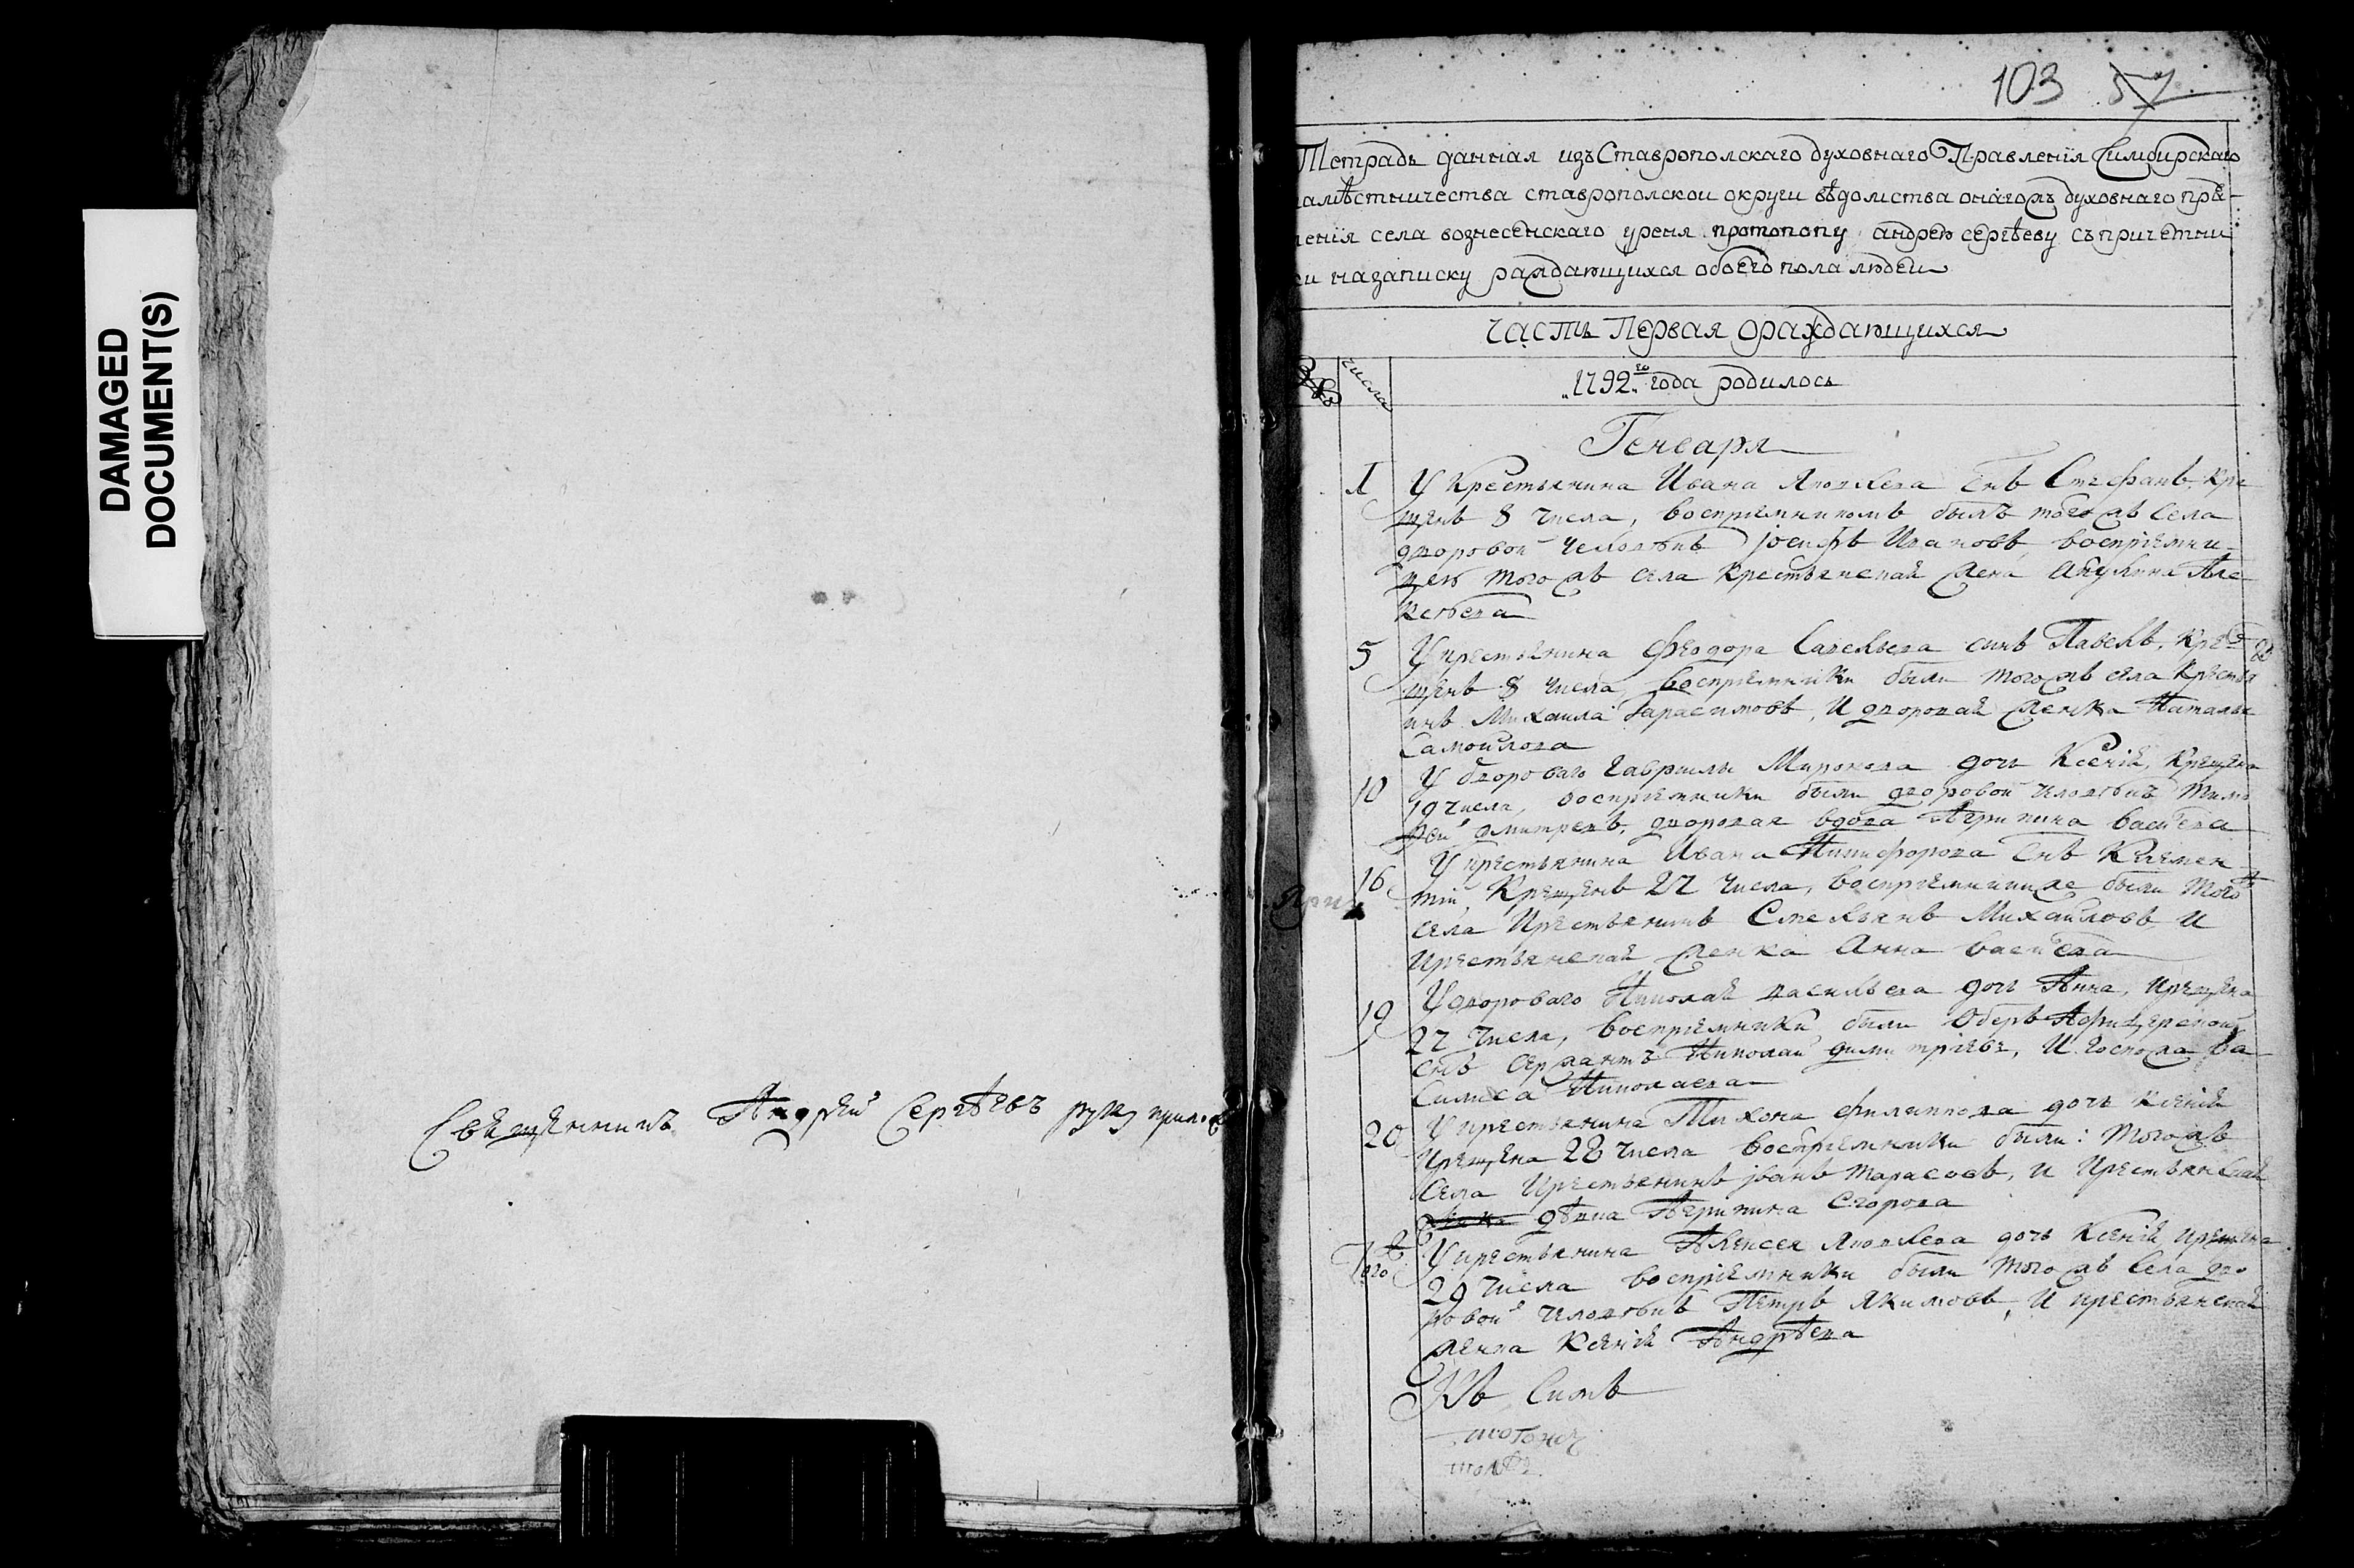 DAMAGED
DOCUMENT(S)
Священникъ Андрей Сергѣевъ руку
103 57
Тетрадь данная изъ Ставрополскаго духовнаго Правленiя Симбирскаго
амѣстничества ставрополской округи вѣдомства онагожъ духовнаго пра-
ленiя села вознесенскаго уреня протопопу андрею сергѣеву съ причетни
ки на записку раждающихся обоего пола людей
Часть Первая о раждающихся
числа
1792го года родилось
Генваря
1 У Крестьянина Ивана Яковлева снъ Стефанъ, кре
щенъ 8 числа, восприемникомъ былъ того жъ села
дворовой человѣкъ iосифъ Ивановъ восприемни-
цею того жъ села крестьянская жена Акулина Але
ксѣева
5 У крестьянина Феодора Савельева сынъ Павелъ, кре
щенъ 8 числа, восприемники были того жъ села крестья
инъ Михаила Гарасимовъ, и дворовая женка Наталья
Самойлова
10 У двороваго Гаврилы Миронова дочь Ксенiя, крещена
19 числа, восприемники были дворовой человѣкъ Тимо
фей Дмитревъ, дворовая вдова Агрипина васильева
16 У крестьянина Ивана Никифорова снъ Клемен
тiй, Крещенъ 27 числа, восприемники же были того жъ
села крестьянинъ Емельянъ Михайловъ и
крестьянская женка Анна васильева
19 У двороваго Николая васильева дочь Анна, крещена
27 числа, восприемники были Оберъ Афицерской
снъ сержантъ Николай димитрiевъ, и госпожа Ва
силиса Николаева
20 У крестьянина Тихона Филиппова дочь ксенiя
крещена 28 числа восприемники были: того жъ
села крестьянинъ iванъ Тарасовъ, и крестьянская
дѣвка Агрипина Егорова
У крестьянина Алексея Яковлева дочь Ксенiя, крещена
29 числа восприемники были того жъ села дво
ровой человѣкъ Петръ Якимовъ, и крестьянская
женка Ксенiя Андрѣева
Къ Симъ